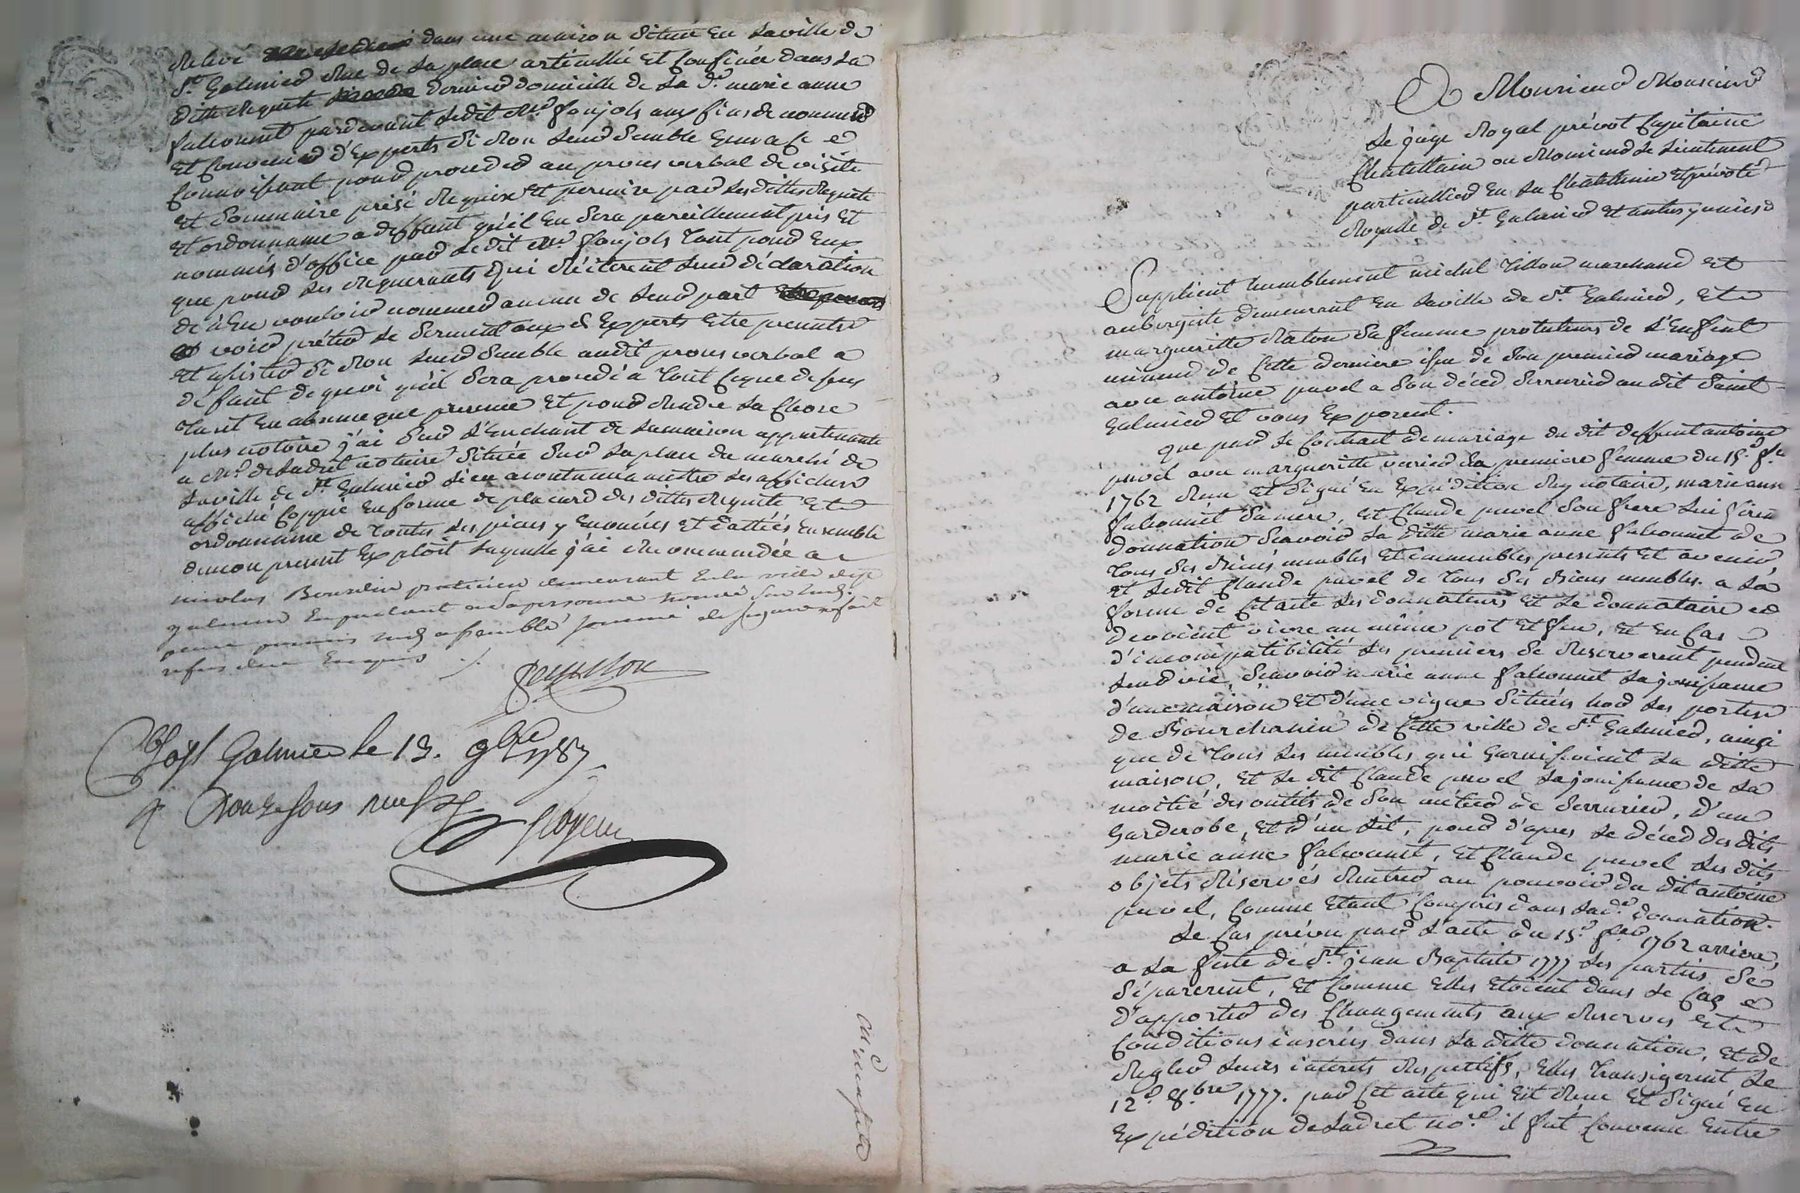 relevé dans une maison située en la ville de
St Galmier rue de la place articullée et confinée dans la
ditte requete dernier domicille de la de marie anne
falconnet pardevant ledit Mr foujols aux fins de nommer
et convenir d'experts si bon leur semble gens a ce
connoissant pour proceder au proces verbal de visite
et sommaire prisé requise et permise par lesdittes requete
et ordonnance a deffaut qu'il en sera pareillement pris et
nommés d'office par ledit Mr foujols tant pour eux
que pour les requerants qui réiterent leur déclaration
de n'en vouloir nommer aucun de leur part
voir préter le serment aux dts Experts etre presents
et assister si bon leur semble audit proces verbal a
défaut de quoi qu'il sera procedé a tout ce que dessus
tant en absence que presence et pour rendre la chose
plus notoire j'ai sur l'enchant de la maison appartenante
a Mr de ladret notaire située sur la place du marché de
la ville de St Galmier lieu accoutumé a mettre les affiches
affiché coppie en forme de placard des dittes requete et
ordonnance de toutes les pieces y enoncées et dattées ensemble
de mon present exploit laquelle j'ai recommandée a
nicolas Bourdin praticien demeurant en la ville de st
galmier en parlant a sa personne
refus de ce enquis
Cllé a St Galmier le 13. 9bre 1787
R douze sous neuf d
A Monsieur Monsieur
Le juge Royal prévot Capitaine
Chatellain ou Monsieur le Lieutenant
particullier en la Chatellenie et prévoté
Royalle de St Galmier et autres unies
Supplient humblement michel tillon marchand et
aubergiste demeurant en la ville de St Galmier, et
marguerite Raton sa femme protuteurs de l'Enfant
mineur de cette derniere issu de son premier mariage
avec antoine purel a son déced serrurier audit Saint
Galmier et vous exposent.
que par le contrat de mariage du dit deffunt antoine
purel avec marguerite verier sa premiere femme du 15e fer
1762 reçu et signé en Expédition Rey notaire, marie anne
falconnet sa mere, et Claude purel son frere lui firent
donnation scavoir la ditte marie anne falconnet de
tous ses biens meubles et immeubles presents et avenir,
et ledit Claude purel de tous ses biens meubles. a la
forme de cet acte les donnateurs et le donnataire
devoient vivre au même pot et feu, et en cas
d'incompatibilité les premiers se reserverent pendant
leur vie, scavoir marie anne falconnet la jouissance
d'une maison et d'une vigne situées hors les portes
de Bourchanin de cette ville de St Galmier, ainsi
que de tous les meubles qui garnissoient la ditte
maison, et le dit Claude purel la jouissance de la
moitié des outils de son métier de serrurier, d'un
garderobe, et d'un lit, pour d'apres le déced des dits
marie anne falconnet, et Claude purel les dits
objets réservés rentrer au pouvoir du dit antoine
purel, comme etant compris dans la de donnation.
Le cas prévu par l'acte du 15e fer 1762 arriva,
a la feste de St jean Baptiste 1777 les parties se
séparerent, et comme elles etoient dans le cas
d'apporter des changements aux reserves et
conditions inserées dans la ditte donnation, et de
regler leurs interets respectifs, elles transigerent le
12e 8bre 1777. par cet acte qui est reçu et signé en
Expédition de Ladret nore il fut convenu entre